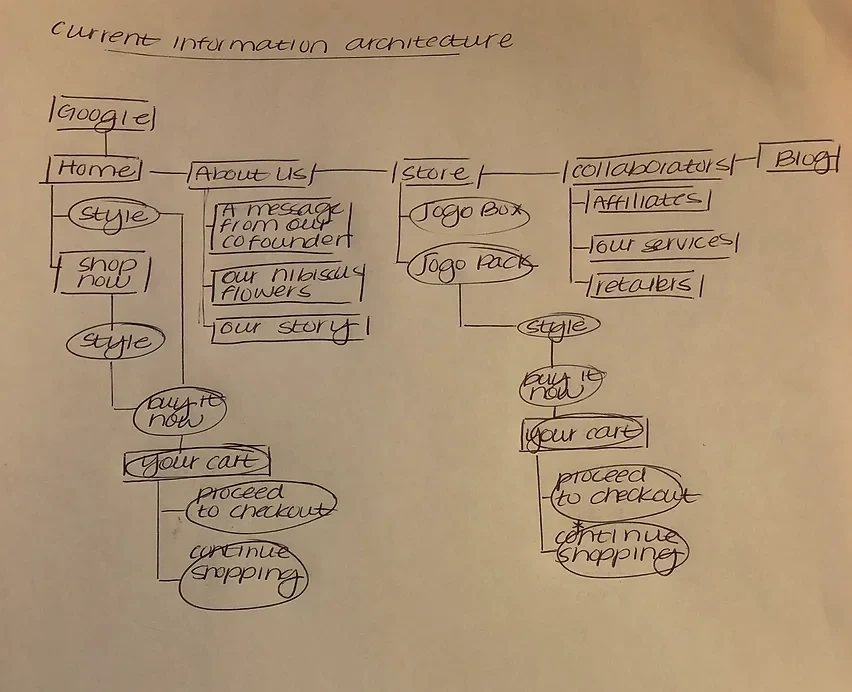 current information architecture
Google
Home
About Us
Store
collaborators
Blog
style
shop
now
style
A message
from our
cofounder
our hibiscus
flowers
our story
Jogo Box
Jogo Pack
Affiliates
our services
retailers
buy it
now
your cart
proceed
to checkout
continue
shopping
style
buy it
now
your cart
proceed
to checkout
*
continue
shopping